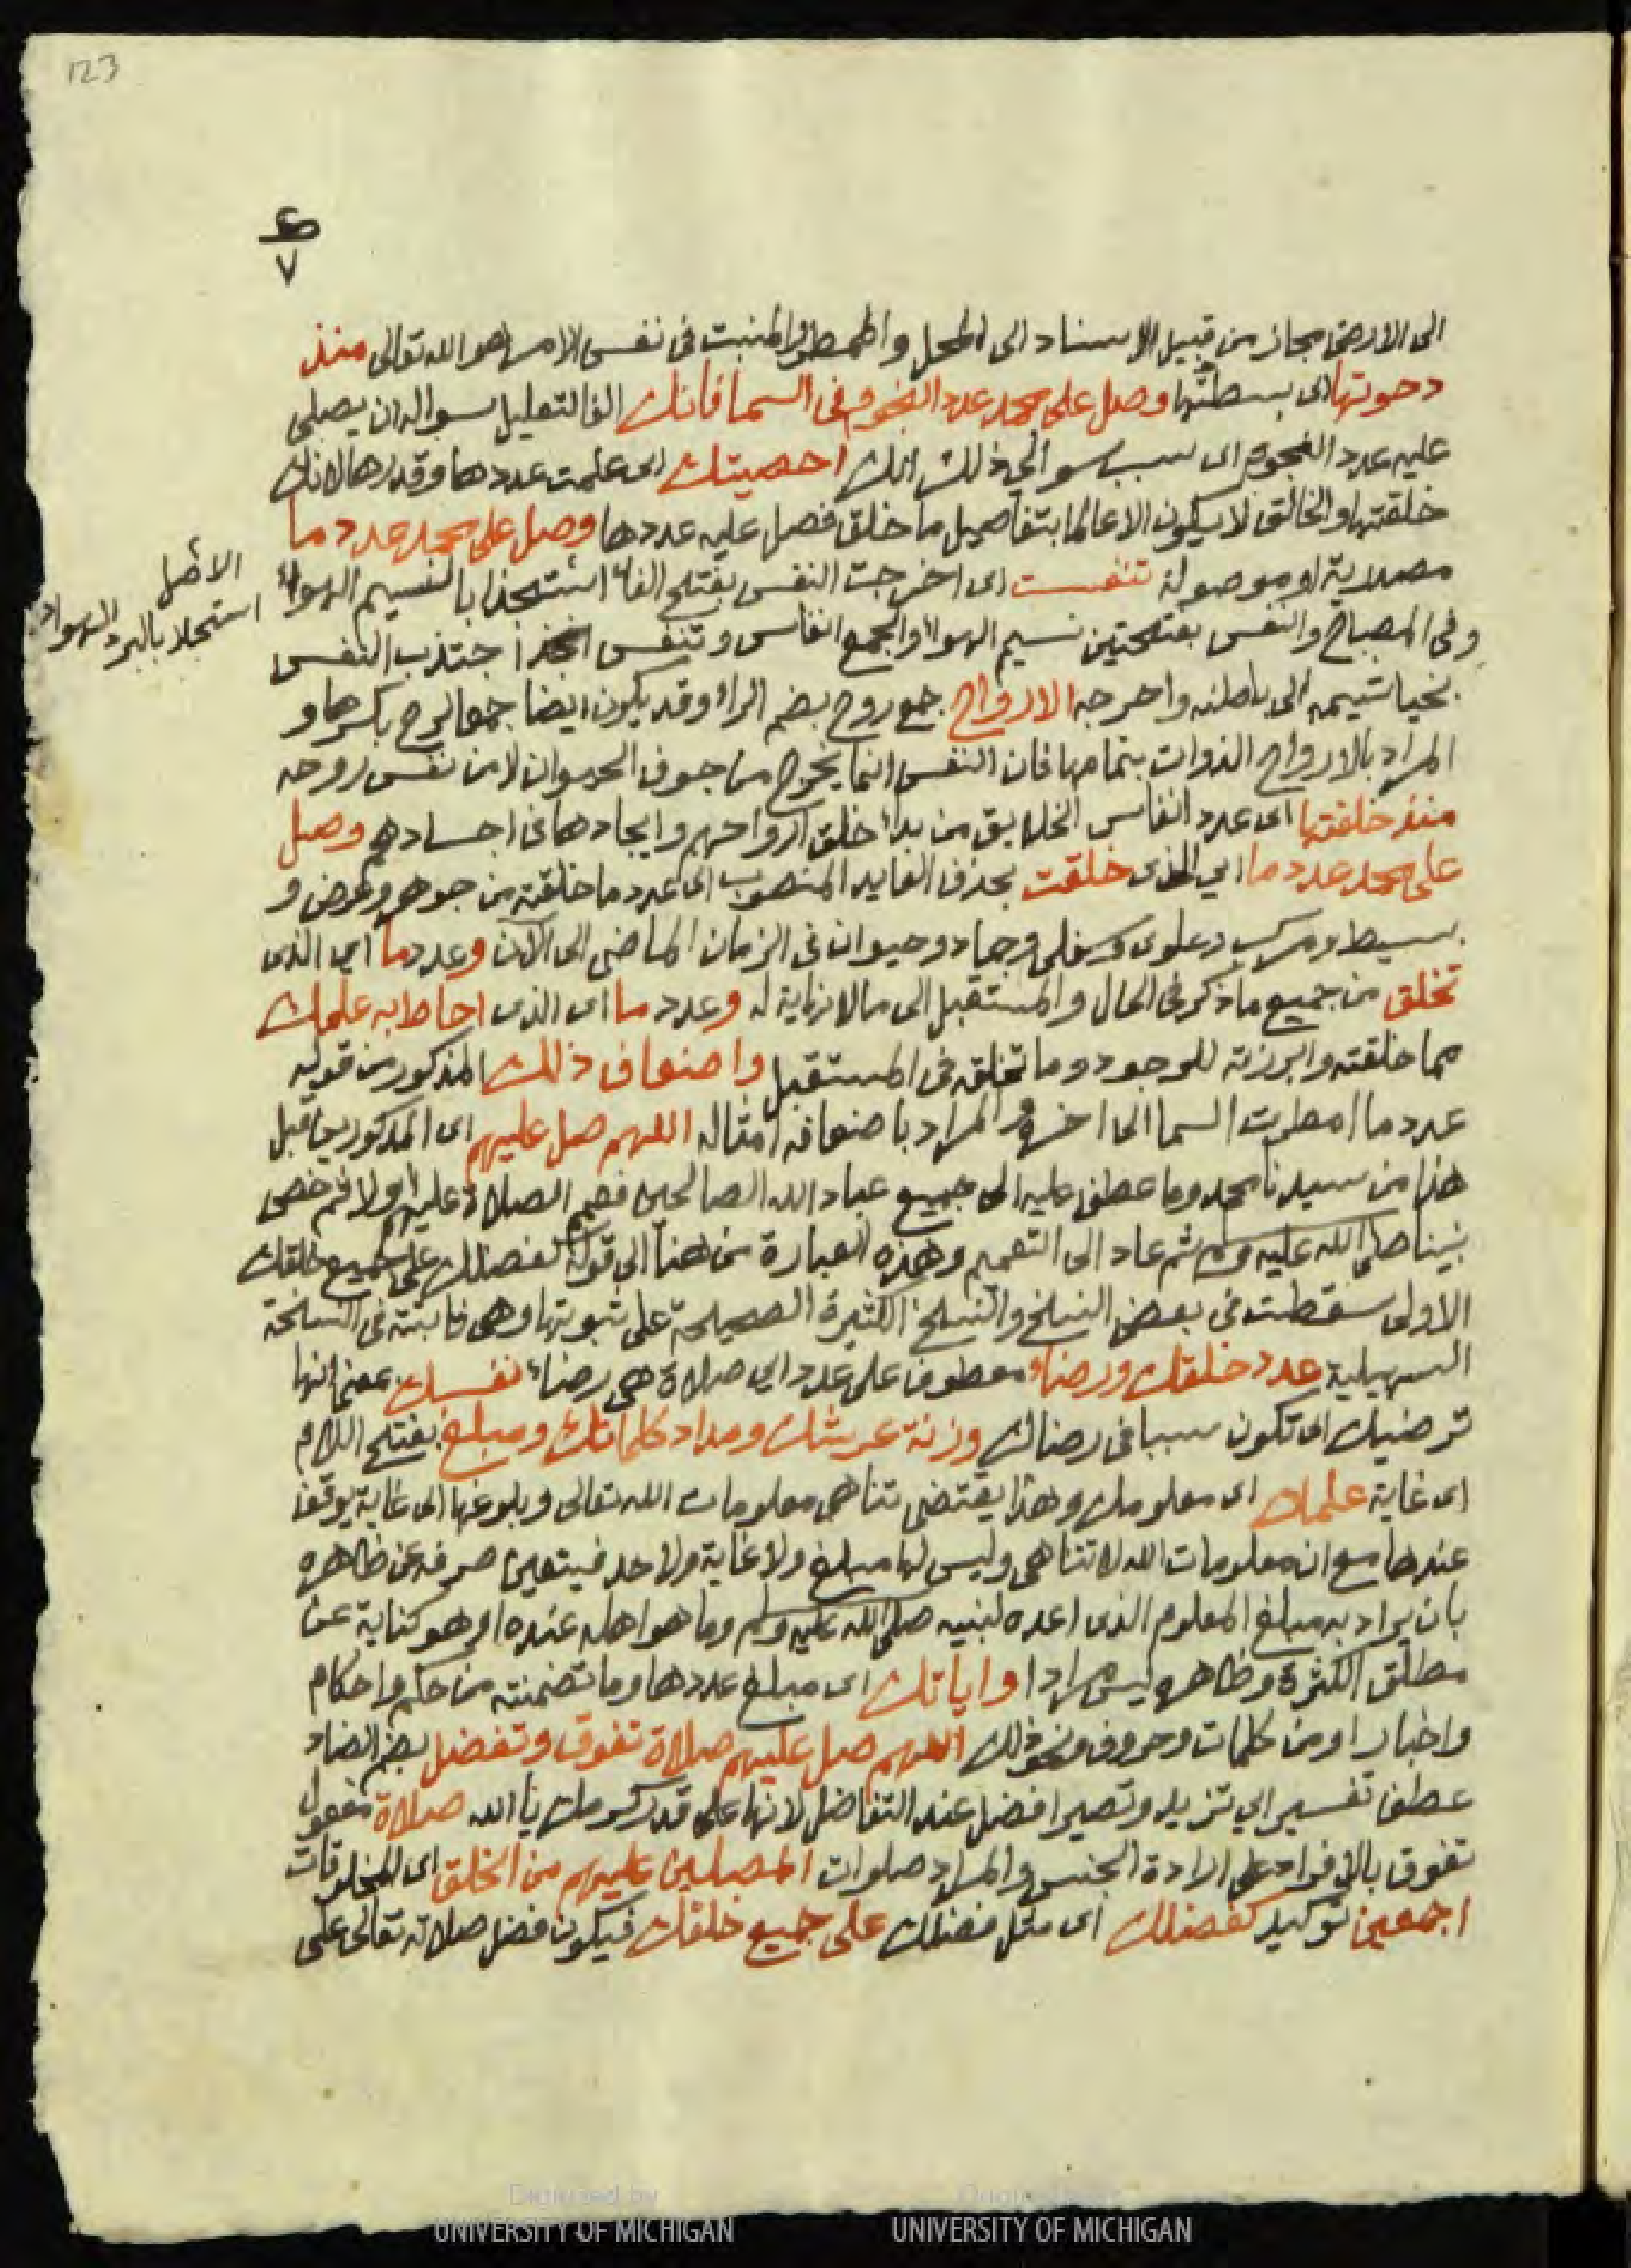 123
ع
٧
الى الارض مجاز من قبيل الاسناد الى المحل والممطر والمنبت فى نفس الامر هو الله تعالى منذ
دحوتها اى بسطتها وصل على محمد عدد النجوم فى السما فانك الفا لتعليل سواله ان يصلى
عليه عدد النجوم اى سبب سوالى ذلك انك احصيتك اى علمت عددها وقدرها لانك
خلقتها والخالق لا يكون الا عالما بتفاصيل ما خلق فصل عليه عددها وصل على محمد عدد ما
مصدرية او موصولة تنفست اى اخرجت النفس بفتح الفاء بالنسيم الهواء
الاصل
استجلابا لبرد الهواء
وفى المصباح والنفس بفتحتين نسيم الهوا والجمع انفاس وتنفس اجتذب النفس
الى باطنه واخرجه الارواح جمع روح بضم الراء وقد يكون ايضا جمعا لريح بكسرها و
المراد بالارواح الذوات بتمامها فان النفس انما يخرج من جوف الحيوان لا من نفس روحه
منذ خلقتها اى عدد انفاس الخلايق من بداء خلق ارواحهم وايجادها فى اجسادهم وصل
على محمد عدد ما اي الذى خلقت بحذف العايد المنصوب اى عدد ما خلقته من جوهر وعرض و
بسيط ومركب وعلوى وسفلى وجماد وحيوان فى الزمان الماضى الى الآن وعدد ما اي الذى
تخلق من جميع ما ذكر فى الحال والمستقبل الى مالا نهاية له وعدد ما اى الذى احاط به علمك
مما خلقته وابرزته للوجود وما تخلقه فى المستقبل واضعاف ذلك المذكور من قوله
عدد ما امطرت السما الى اخره والمراد باضعافه امثاله اللهم صل عليهم اى المذكورين قبل
هذا من سيدنا محمد وما عطف عليه الى جميع عباد الله الصالحين فعمم الصلاة عليهم اولا ثم خص
نبينا صلى الله عليه وسلم ثم عاد الى التعميم وهذه العبارة من هنا الى قوله كفضلك على جميع خلقك
الاولى سقطت فى بعض النسخ والنسخ الكثيرة الصحيحة على ثبوتها وهى ثابتة فى النسخة
السهيلية عدد خلقك ورضاء معطوف على عدد اي صلاة هى رضاء نفسك بمعنى انها
ترضيك اى تكون سببا فى رضاك وزنة عرشك ومداد كلماتك ومبلغ بفتح اللام
اى غاية علمك اى معلومك وهذا يقتضى تناهى معلومات الله تعالى وبلوغها الى غاية يوقف
عندها مع ان معلومات الله لا تتناهى وليس لها مبلغ ولا غاية ولا حد فيتعين صرفه عن ظاهره
بان يراد به مبلغ المعلوم الذى اعده لنبيه صلى الله عليه وسلم وما هو اهله عنده او هو كناية عن
مطلق الكثرة وظاهره ليس مرادا واياتك اى مبلغ عددها وما تضمنته من حكم واحكام
واخبار او من كلمات وحروف ونحو ذلك اللهم صل عليهم صلاة تفوق وتفضل بضم الضاد
عطف تفسير اي تزيد وتصير افضل عند التفاضل لانها على قدر كرمك يا الله صلاة مفعول
تفوق بالافراد على ارادة الجنس والمراد صلوات المصلين عليهم من الخلق اى المخلوقات
اجمعين توكيد كفضلك اى مثل فضلك على جميع خلقك فيكون فضل صلاته تعالى على
Digitized by
UNIVERSITY OF MICHIGAN
UNIVERSITY OF MICHIGAN